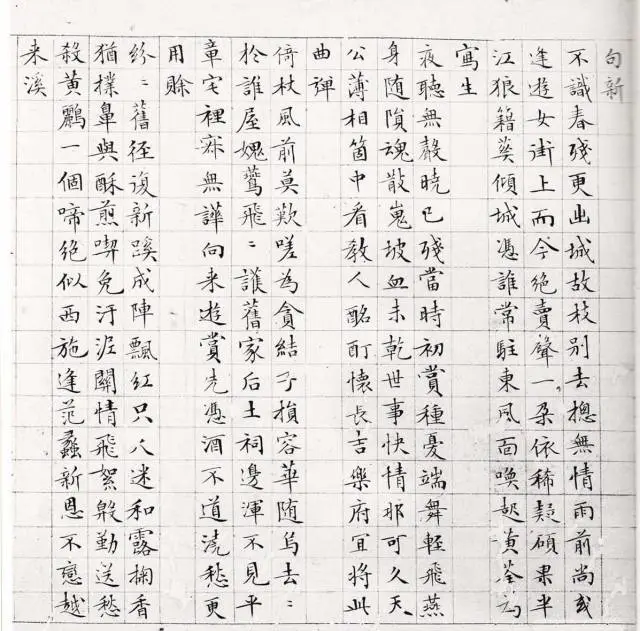 句新
不識春殘更出城故枝別去摠無情雨前尚或
逢遊女街上而今絕賣聲一朵依稀疑碩果半
江狼籍葬傾城憑誰常駐東風面喚起黃荃為
寫生
夜聽無聲曉已殘當時初賞種憂端舞輕飛燕
身随隕魂散嵬坡血未乾世事快情耶可久天
公薄相箇中看教人酩酊懷長吉樂府宜將此
曲彈
倚杖風前莫歎嗟為貪結子損容華随烏去〻
於誰屋媿鶯飛〻護舊家后土祠邊渾不見平
章宅裡寂無譁向来遊賞先憑酒不道澆愁更
用賒
紛〻舊徑復新蹊成陣飄紅只八迷和露掬香
猶撲鼻與酥煎喫免汙泥關情飛絮殷勤送愁
殺黃鸝一個啼絕似西施逢范蠡新恩不戀越
来溪